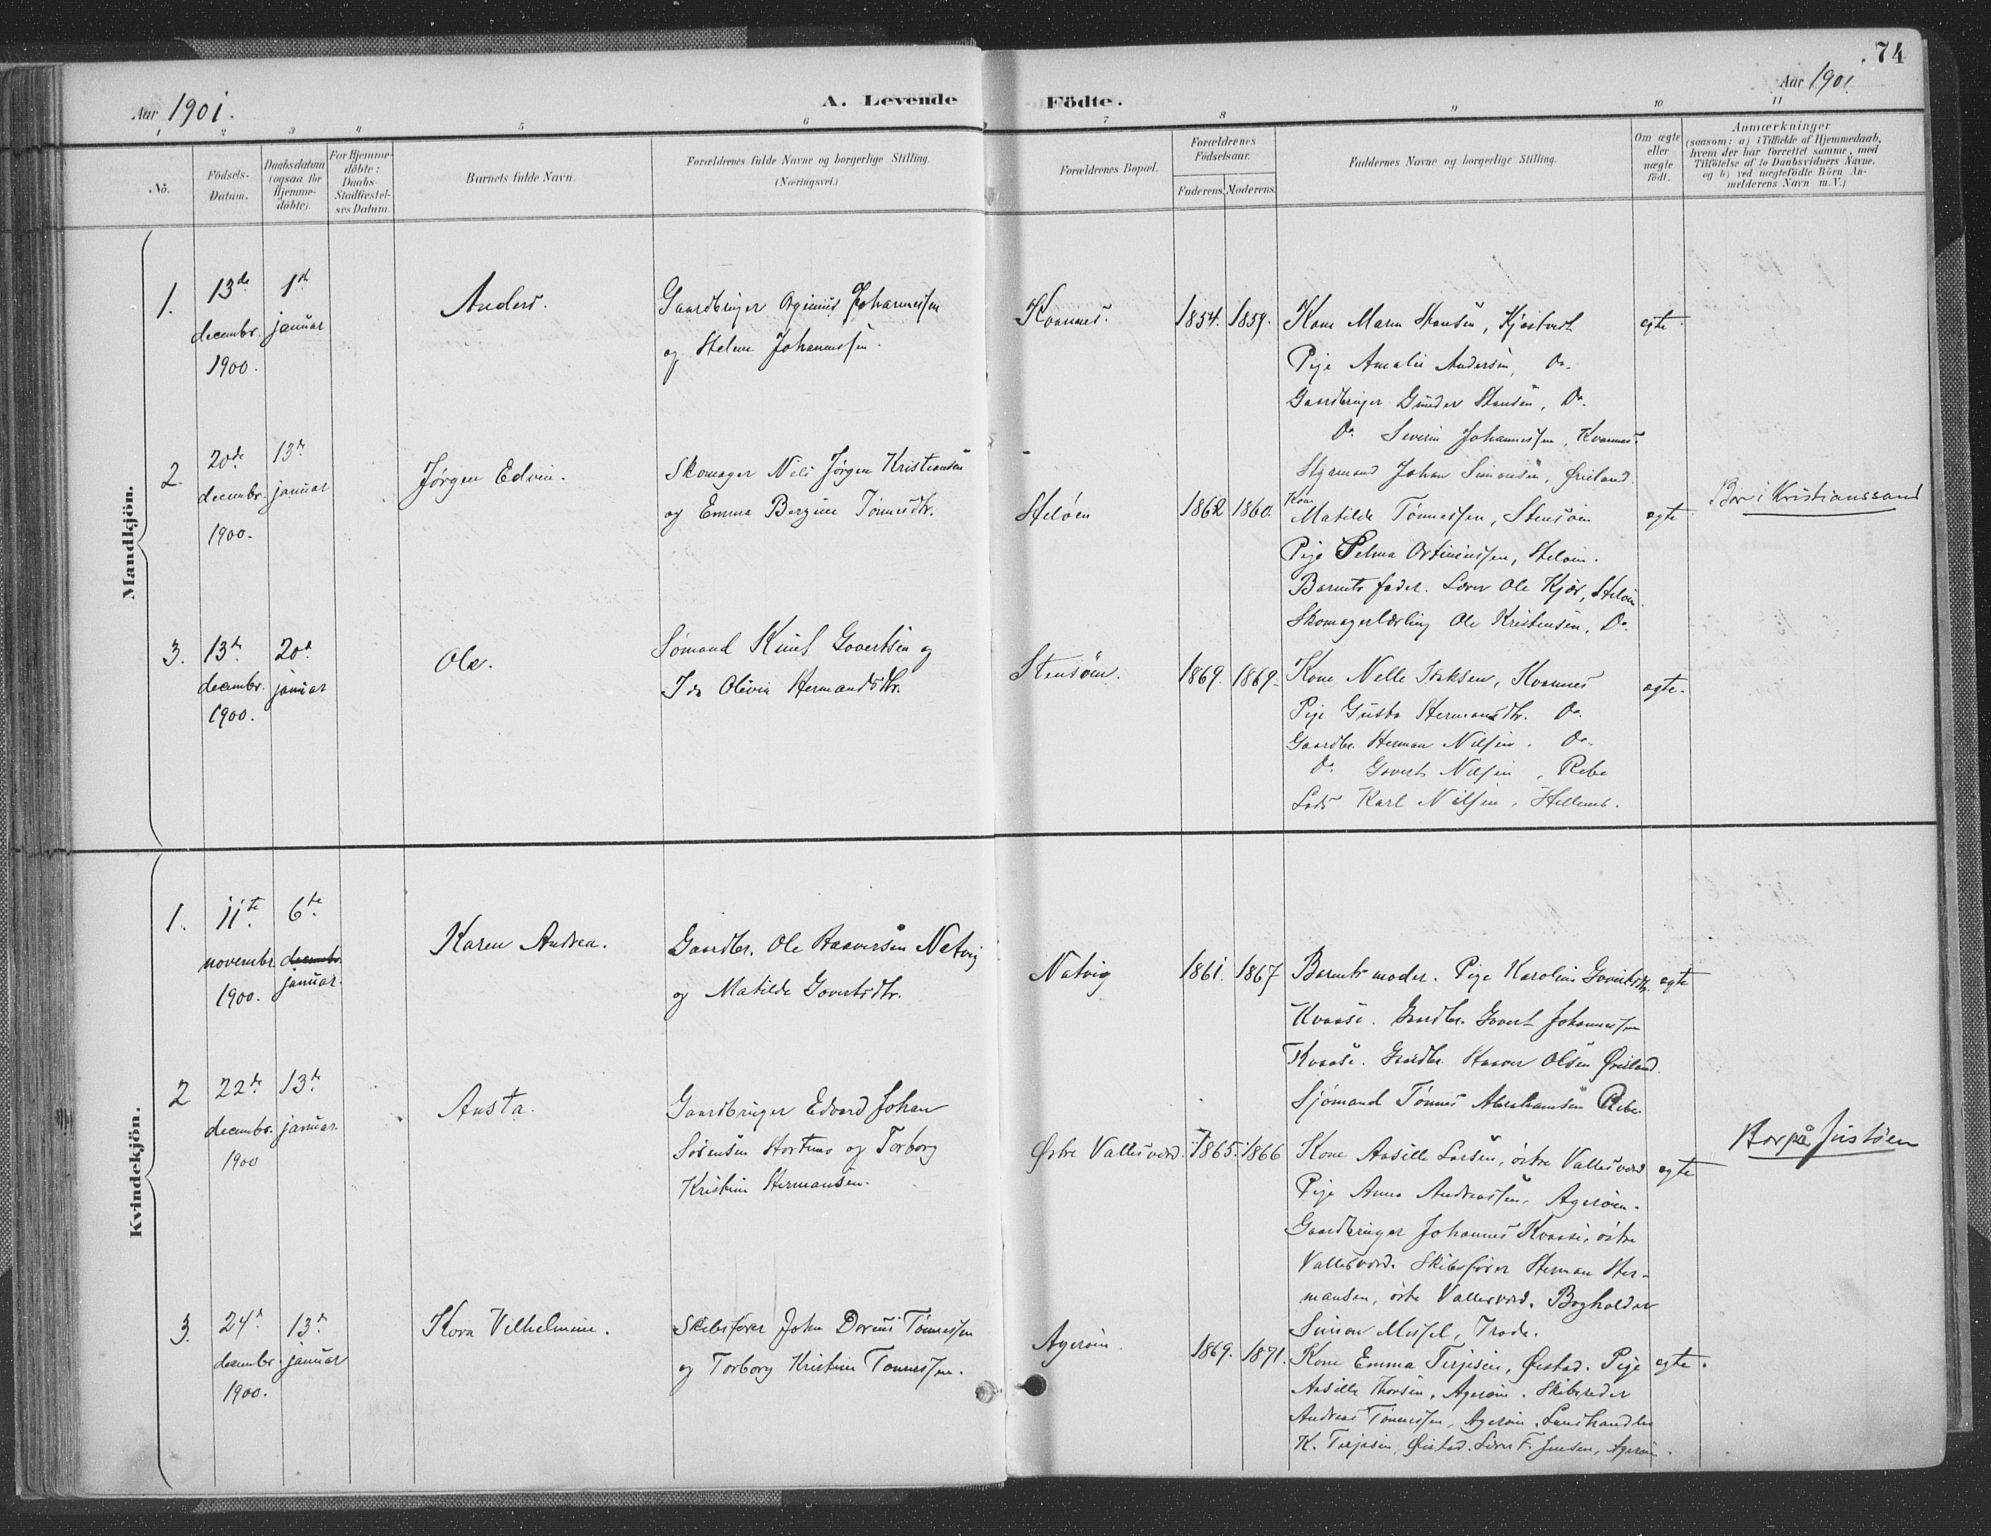 74
Aar 1901.
A. Levende Födte.
Aar 1901.
1 2 3 4 5 6 7 8 9 10 11
No.
Födsels-
Datum.
Daabsdatum
(ogsaa for
Hjemme-
döbte).
For Hjemme-
döbte:
Daabs-
Stadfæstel-
ses Datum.
Barnets fulde Navn.
Forældrenes fulde Navne og borgerlige Stilling.
(Næringsvei.)
Forældrenes Bopæl.
Forældrenes
Födselsaar.
Faderens. Moderens.
Faddernes Navne og borgerlige Stilling.
Om ægte
eller
uægte
födt.
Anmærkninger
(saasom: a) i Tilfælde af Hjemmedaab,
hvem der har forrettet samme, med
Tilföielse af to Daabsvidners Navne,
og b) ved uægtefödte Börn An-
melderens Navn m. V.)
Mandkjön.
1.
13de
decembr.
1900.
1ste
januar
Anders.
Gaardbruger Johannessen
og Helene Johannessen.
Kvannes.
1854. 1859.
Kone Maren Hansen,
Pige Amalie Andersen, Do.
Gaardbruger Gunder Hansen, Do.
Do. Severin Johannessen, Kvannes.
Styrmand Johan Simonsen, Øriland.
egte.
2.
20de
decembr.
1900.
13de
januar
Jørgen Edvin.
Skomager Nils Jørgen Kristiansen
og Emma Bergine Tönnesdtr.
Heløen
1862 1860.
Kone
Matilde Tönnessen, Stensøen
Pige Selma Heløen.
Barnets fader. Lærer Ole Kjær, Heløen.
Skomagerlærling Ole Kristensen, Do.
egte
Bor i Kristianssand
3.
13de
decembr.
1900.
20de
januar
Ole.
Sømand Knut Govertsen og
Ida Olivia Hermandsdtr.
Stensøen.
1869. 1869.
Kone Nelle Isaksen, Kvannes
Pige Gusta Hermansdtr. Do.
Gaardbr. Herman Nilsen. Do.
Do. Govert Nilsen, Rebe
Lods Karl Nilsen,
egte.
Kvindekjön.
1.
11te
novembr.
1900.
6te
decembr.
januar.
Karen Andrea.
Gaardbr. Ole Haaversen Natvig
og Matilde Govertsdtr.
Natvig
1861. 1867
Barnets moder. Pige Karoline Govertsdtr.
Kvaase. Gaardbr. Govert Johannessen
Kvaase. Gaardbr. Haaver Olsen Øriland.
Sjömand Tönnes Abrahamsen Rebe
egte
2
22de
decembr.
1900
13de
januar.
Aasta.
Gaardbruger Edvard Johan
Sørensen og Torborg
Kristine Hermansen.
Østre Vallesværd.
1865. 1866
Kone Aasille Larsen, østre Vallesværd
Pige Anna Andreassen, Agerøen.
Gaardbruger Johannes Kvaase, østre
Vallesværd. Skibsfører Herman Her-
mansen, østre Vallesværd. Bogholder
Simon Messel, Trode.
egte
Bor på Justøen
3.
24de
decembr.
1900.
13de
januar
Kora Vilhelmine.
Skibsfører John Dorius Tönnessen
og Torborg Kristine Tönnessen.
Agerøen.
1869. 1871.
Kone Emma Terjesen, Øestad. Pige
Aasille Thorsen, Agerøen. Skibsreder
Andreas Tönnessen, Agerøen. Landhandler
K. Terjesen, Øestad. Lærer F. Jensen, Agerøen.
egte.